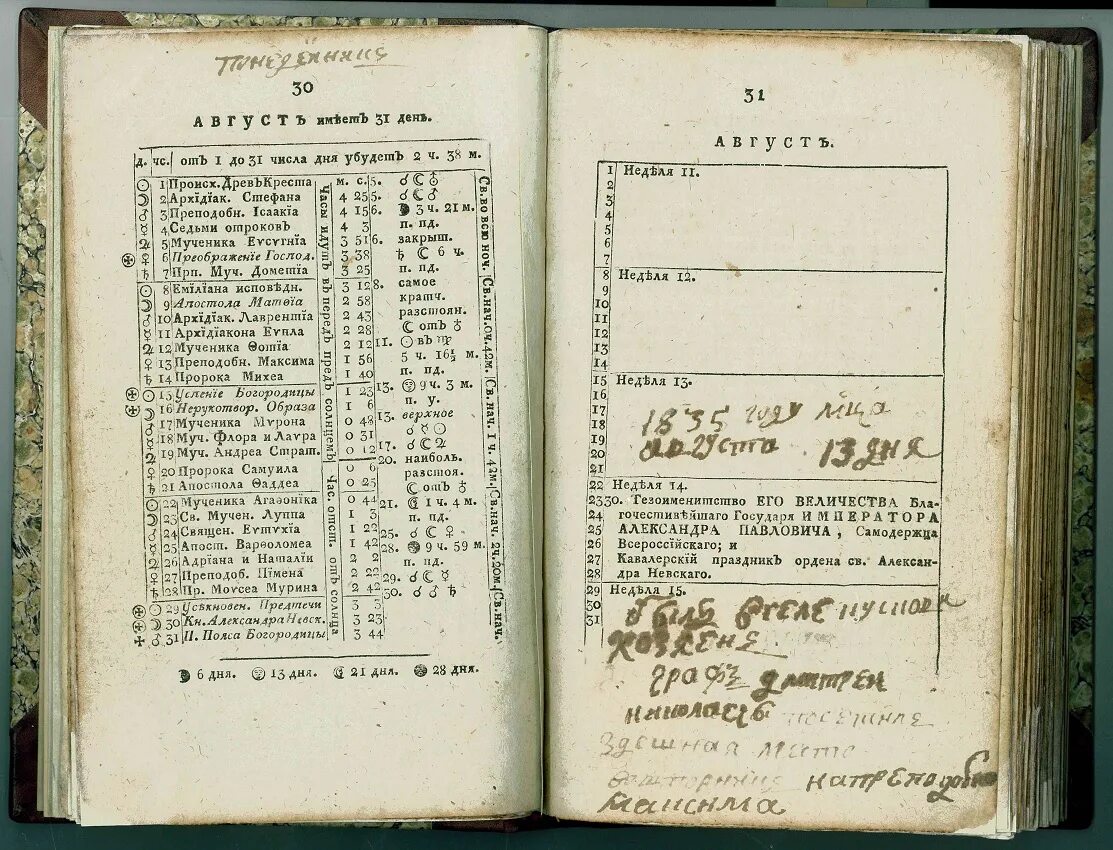 Понеделникъ
30
АВГУСТЪ имѣетъ 31 день.
д. чс. отъ 1 до 31 числа дня убудетъ 2 ч. 38 м.
☉ 1 Происх. ДревЪКреста м. с. 5. ☌☾♁
☽ 2 Архїдїак. Стефана 4 25 5. ☌☾♂
♂ 3 Преподобн. Ісаакїа 4 15 6. 3 ч. 21 м.
☿ 4 Седьми отроковъ 4 3 п. пд.
♃ 5 Мученика Еѵсѵгнїа 3 51 6. закрыт.
♀ 6 Преображенїе Господ. 3 38 ♄ ☾ 6 ч.
♄ 7 Прп. Муч. Дометїа 3 25 п. пд.
☉ 8 Емїлїана исповѣдн. 3 12 8. самое
☽ 9 Апостола Матѳїа 2 58 кратч.
♂ 10 Архїдїак. Лаврентїа 2 43 разстоян.
☿ 11 Архїдїакона Еѵпла 2 28 ☾ отъ ♁
♃ 12 Мученика Фотїа 2 12 11. ☉ въ ♍
♀ 13 Преподобн. Максима 1 56 5 ч. 16½ м.
♄ 14 Пророка Михеа 1 40 п. у.
☉ 15 Успенїе Богородицы 1 23 13. 9 ч. 3 м.
☽ 16 Нерукотвор. Образа 1 6 13. верхное
♂ 17 Мученика Мѵрона 0 48 ☌☿☉
☿ 18 Муч. Флора и Лаѵра 0 31 17. ☌☾♃
♃ 19 Муч. Андреа Страт. 0 12 20. наиболь.
♀ 20 Пророка Самуила 0 6 разстоя.
♄ 21 Апостола Фаддеа 0 25 ☾ отъ ♁
☉ 22 Мученика Агаѳонїка 0 44 21. 1 ч. 4 м.
☽ 23 Св. Мучен. Луппа 1 3 п. пд.
♂ 24 Священ. Еѵтѵхїа 1 22 25. ☌☾♀
☿ 25 Апост. Варѳоломеа 1 42 28. 9 ч. 59 м.
♃ 26 Адрїана и Наталїи 2 2 п. пд.
♀ 27 Преподоб. Пїмена 2 22 29. ☌☾☿
♄ 28 Пр. Моѵсеа Мурина 2 42 30. ☌♂♄
☉ 29 Усѣкновен. Предтечи 3 3
☽ 30 Кн. Александра Невск. 3 23
♂ 31 П. Пояса Богородицы 3 44
Часы идутъ въ передъ предъ солнцемъ
Час. отст. отъ солнца
Св. во всю ноч. Св. нач. оч. 42м. Св. нач. 1 ч. 42м. Св. нач. 2ч. 20м. Св. нач.
6 дня. 13 дня. 21 дня. 28 дня.
31
АВГУСТЪ.
1 Недѣля 11.
2
3
4
5
6
7
8 Недѣля 12.
9
10
11
12
13
14
15 Недѣля 13.
16
17 1835 году мца
18
19 августа 13 дня
20
21
22 Недѣля 14.
23 30. Тезоименитство ЕГО ВЕЛИЧЕСТВА Бла-
24 гочестивѣйшаго Государя ИМПЕРАТОРА
25 АЛЕКСАНДРА ПАВЛОВИЧА, Самодержца
26 Всероссїйскаго; и
27 Кавалерскїй праздник ордена св. Алексан-
28 дра Невскаго.
29 Недѣля 15.
30
31
былъ
графъ дмитреи
николаевъ
здешная
напреподобна
маисима